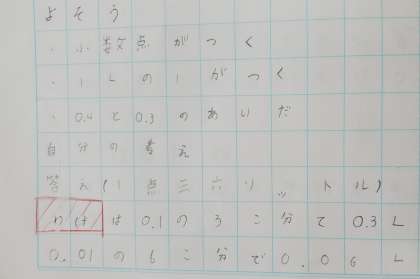 よそう
・小数点がつく
・1Lの1がつく
・0.4と0.3のあいだ
自分の考え
答え(1点三六リットル)
わけは0.1の3こ分で0.3L
0.01の6こ分で0.06L